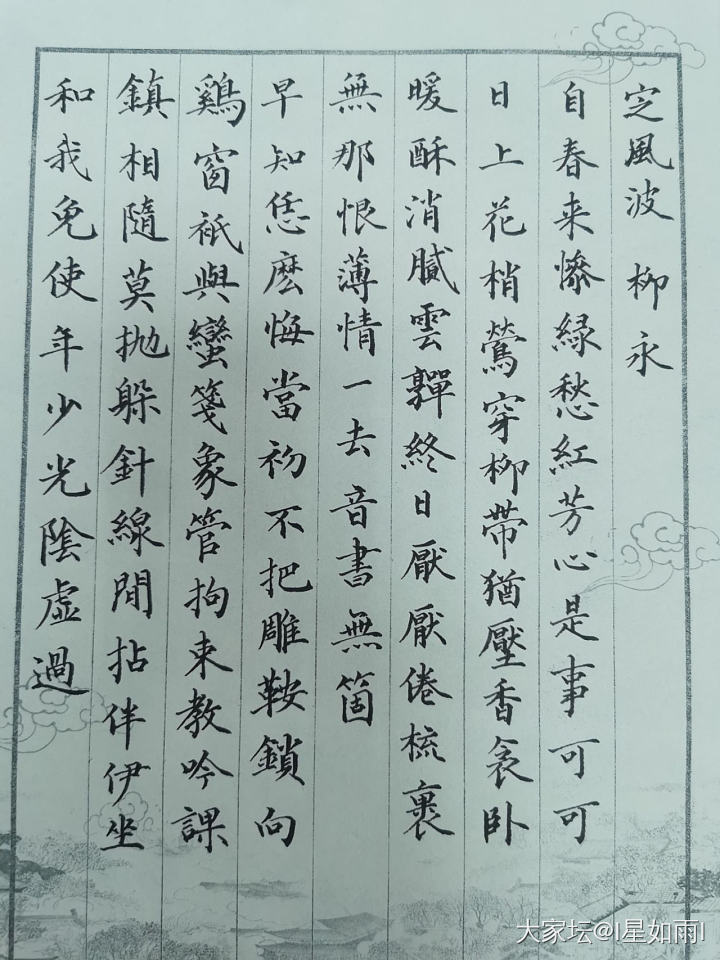 定風波 柳永
自春来惨緑愁紅芳心是事可可
日上花梢鶯穿柳帶猶壓香衾卧
暖酥消膩雲嚲終日厭厭倦梳裹
無那恨薄情一去音書無箇
早知恁麼悔當初不把雕鞍鎖向
鷄窗衹與蠻箋象管拘束教吟課
鎮相隨莫抛躲針線閒拈伴伊坐
和我免使年少光陰虚過
大家坛@l星如雨l